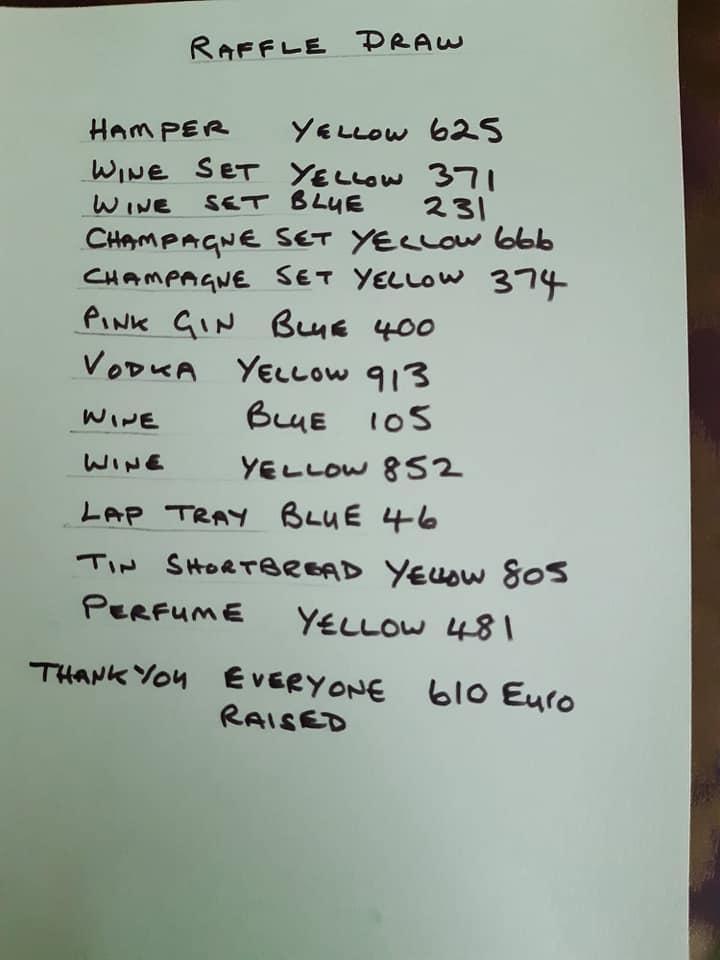 RAFFLE DRAW
HAMPER YELLOW 625
WINE SET YELLOW 371
WINE SET BLUE 231
CHAMPAGNE SET YELLOW 666
CHAMPAGNE SET YELLOW 374
PINK GIN BLUE 400
VODKA YELLOW 913
WINE BLUE 105
WINE YELLOW 852
LAP TRAY BLUE 46
TIN SHORTBREAD YELLOW 805
PERFUME YELLOW 481
THANK YOU EVERYONE 610 Euro
RAISED